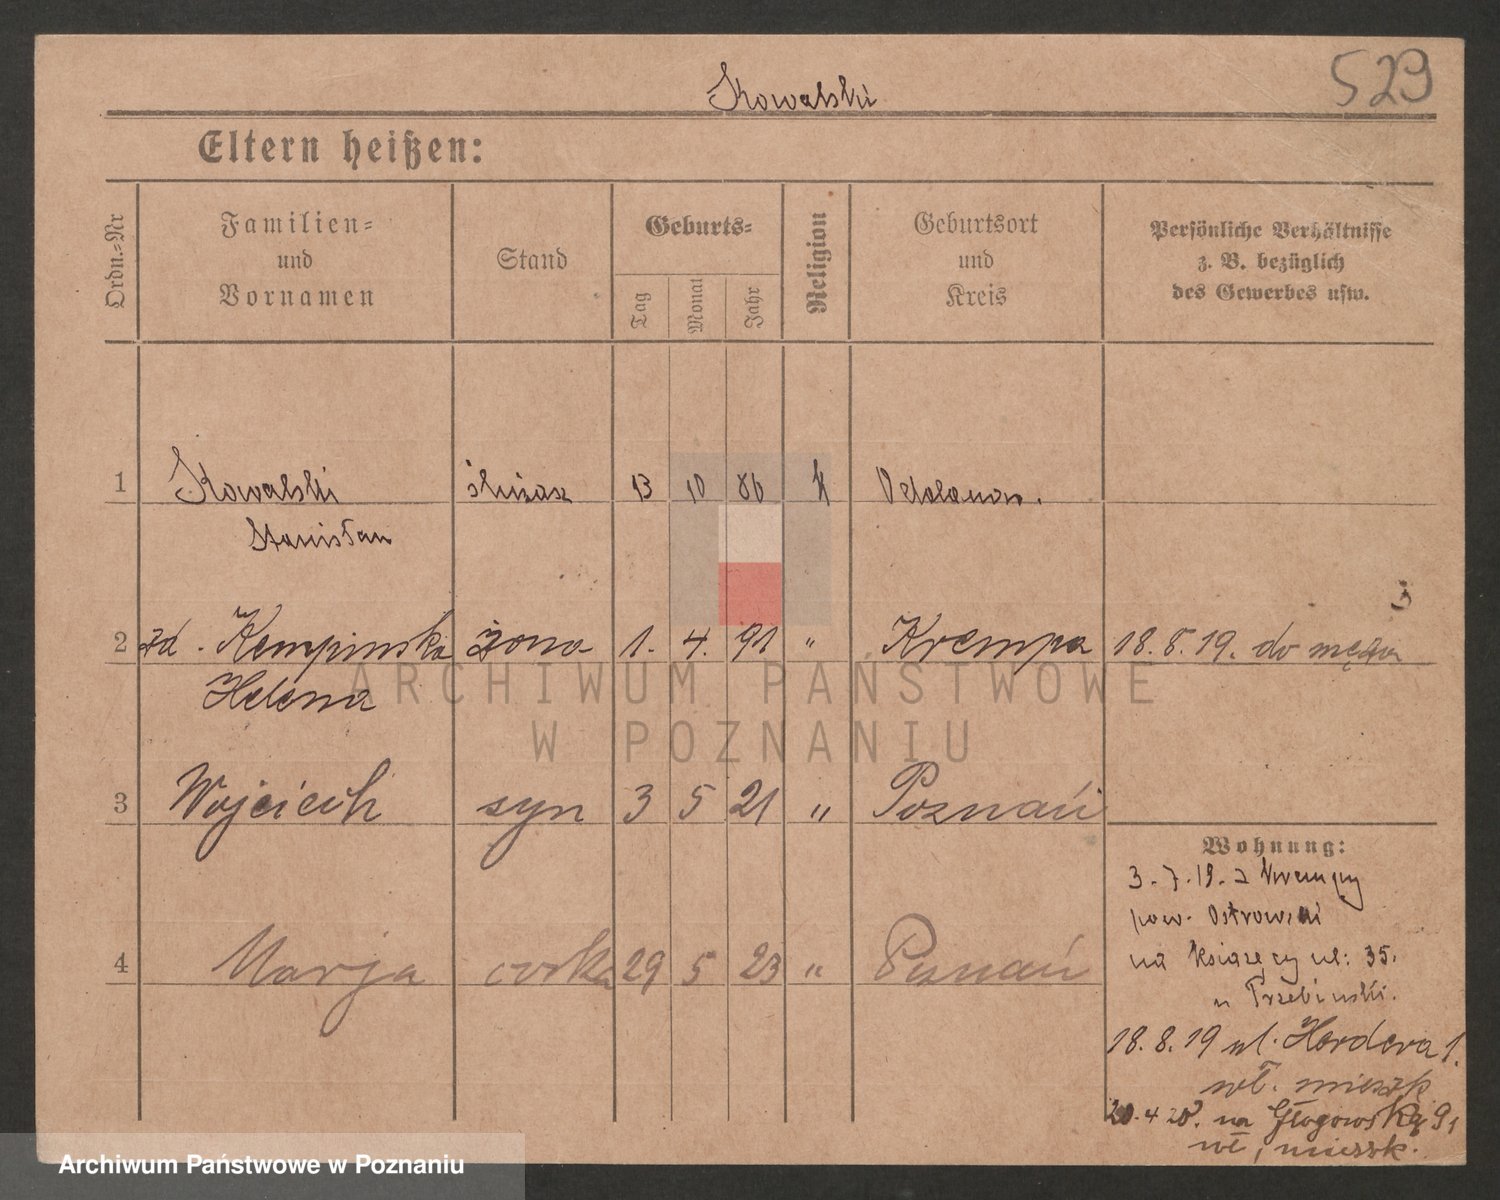 Kowalski
529
Eltern heißen:
Ordn.=Nr
Familien=
und
Vornamen
Stand
Geburts=
Tag
Monat
Jahr
Religion
Geburtsort
und
Kreis
Persönliche Verhältnisse
z. B. bezüglich
des Gewerbes usw.
1 Kowalski ślusarz 13 10 86 k Odolanow.
Stanisław
3
2 zd. Kempinska żona 1. 4. 91 " Krempa 18.8.19. do męża
Helena
3 Wojciech syn 3 5 21 " Poznań
4 Marja córka 29 5 23 " Poznań
Wohnung:
3.7.19. z Krempy
pow. Ostrowski
na Książęcy ul: 35.
u Przebinski.
18.8.19 ul. Herdera 1.
wł. mieszk
20.4 28. na Głogowską 91
wł. mieszk.
ARCHIWUM PAŃSTWOWE
W POZNANIU
Archiwum Państwowe w Poznaniu